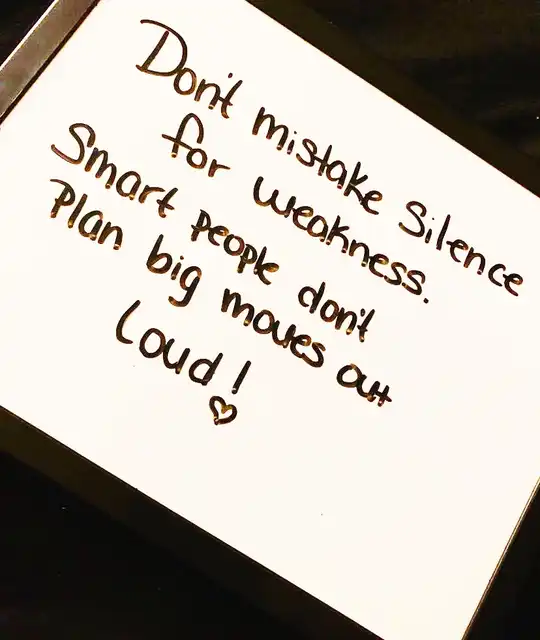 Don't mistake Silence
for weakness.
Smart people don't
Plan big moves out
Loud!